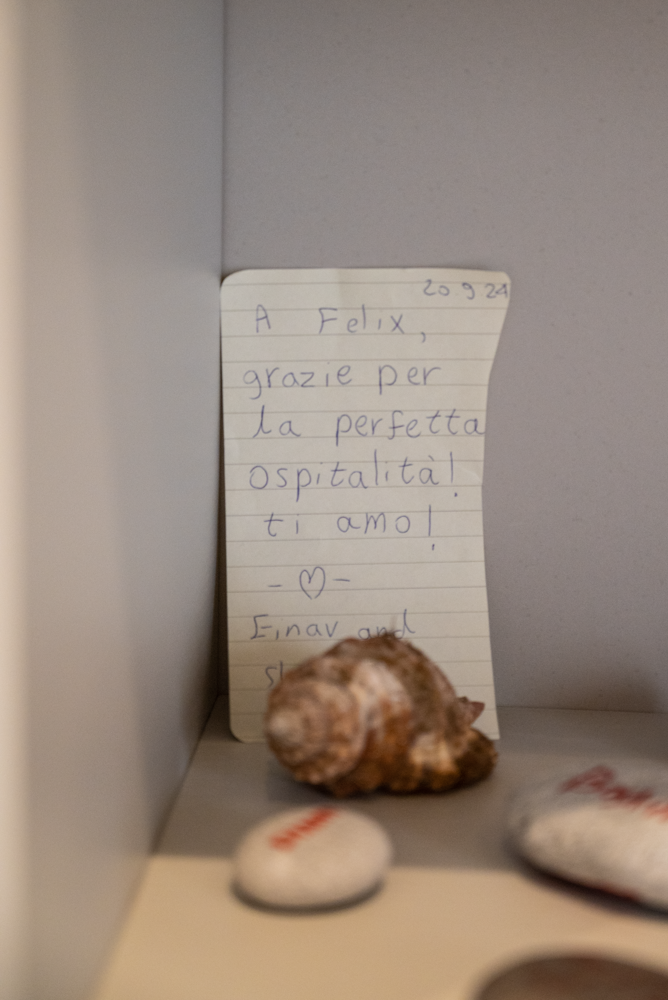 20 9 24
A Felix,
grazie per
la perfetta
ospitalità!
ti amo!
Einav and